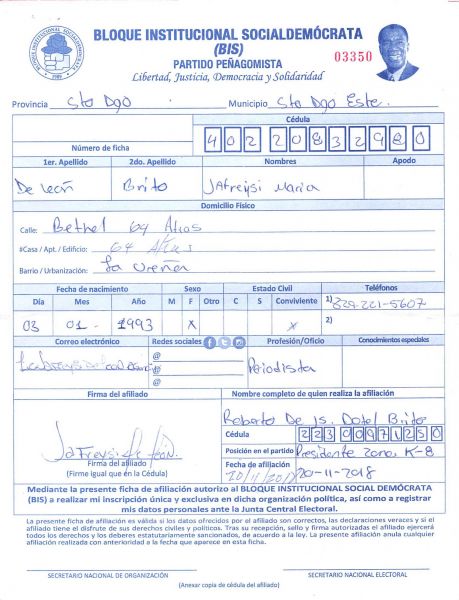 BLOQUE INSTITUCIONAL SOCIALDEMÓCRATA
(BIS)
PARTIDO PEÑAGOMISTA
Libertad, Justicia, Democracia y Solidaridad
03350
Provincia Sto Dgo Municipio Sto Dgo Este.
Cédula
Número de ficha 40220832980
1er. Apellido 2do. Apellido Nombres Apodo
De León Brito Jafreysi Maria
Domicilio Físico
Calle: Bethel 64 Atras
#Casa / Apt. / Edificio: 64 Atras
Barrio / Urbanización: La Ureña
Fecha de nacimiento Sexo Estado Civil Teléfonos
Día Mes Año M F Otro C S Conviviente 1) 829-221-5607
03 01 - 1993 X X 2)
Correo electrónico Redes sociales Profesión/Oficio Conocimientos especiales
@
@ Periodista
@
Firma del afiliado Nombre completo de quien realiza la afiliación
Roberto De Js. Dotel Brito
Cédula 22300971250
Jafreysi De León Posición en el partido Presidente Zona K-8
Firma del afiliado Fecha de afiliación
(Firme igual que en la Cédula) 20/11/2018 20-11-2018
Mediante la presente ficha de afiliación autorizo al BLOQUE INSTITUCIONAL SOCIAL DEMÓCRATA
(BIS) a realizar mi inscripción única y exclusiva en dicha organización política, así como a registrar
mis datos personales ante la Junta Central Electoral.
La presente ficha de afiliación es válida si los datos ofrecidos por el afiliado son correctos, las declaraciones veraces y si el
afiliado tiene el disfrute de sus derechos civiles y políticos. Tras su recepción, sello y firma autorizadas el afiliado ejercerá
todos los derechos y los deberes estatutariamente sancionados, de acuerdo a la ley. La presente afiliación anula cualquier
afiliación realizada con anterioridad a la fecha que aparece en esta ficha.
SECRETARIO NACIONAL DE ORGANIZACIÓN SECRETARIO NACIONAL ELECTORAL
(Anexar copia de cédula del afiliado)